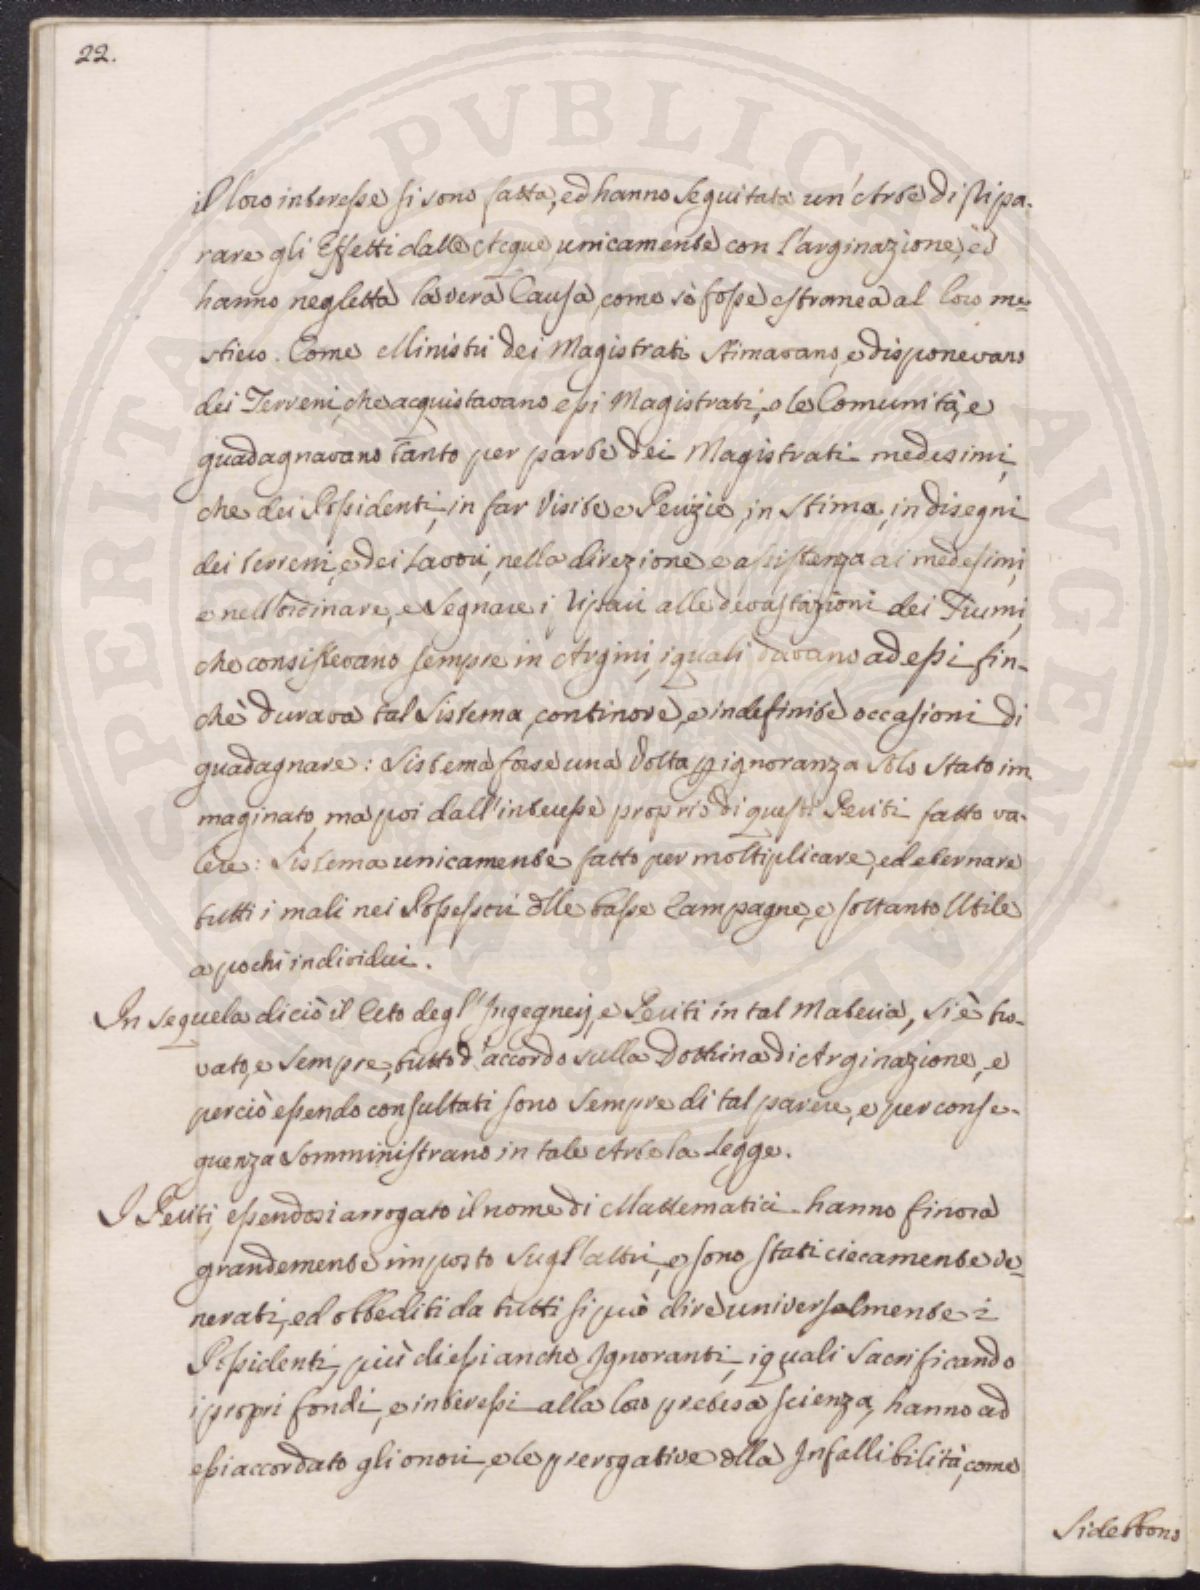 22.
il loro interesse si sono fatta, ed hanno seguitata un'Arte di ripa-
rare gli Effetti dalle Acque unicamente con l'arginazione, ed
hanno negletta la vera Causa, come se fosse estranea al loro me-
stiero. Come Ministri dei Magistrati stimavano, e disponevano
dei Terreni, che acquistavano essi Magistrati, o le Comunità, e
guadagnavano tanto per parte dei Magistrati medesimi,
che dei Possidenti, in far Visite e Perizie, in Stima, in disegni
dei terreni, e dei Lavori, nella direzione e assistenza ai medesimi,
e nell'ordinare, e segnare i ripari alle devastazioni dei Fiumi,
che consistevano sempre in Argini, i quali davano ad essi fin-
chè durava tal Sistema, continove, e indefinite occasioni di
guadagnare: Sistema forse una volta p ignoranza solo stato im-
maginato, ma poi dall'interesse proprio di questi Periti fatto va-
lere: Sistema unicamente fatto per moltiplicare, ed eternare
tutti i mali nei Possessori dlle basse Campagne, e soltanto Utile
a pochi individui.
In sequela di ciò il Ceto degl'Ingegnerj, e Periti in tal Materia, si è tro-
vato, e sempre, tutto d'accordo sulla Dottrina di Arginazione, e
perciò essendo consultati sono sempre di tal parere, e per conse-
guenza somministrano in tale Arte la Legge.
I Periti, essendosi arrogato il nome di Mattematici hanno finora
grandemente imposto sugl'altri, e sono stati ciecamente ve-
nerati, ed obbediti da tutti si può dire universalmente i
Possidenti, più di essi anche Ignoranti, i quali sacrificando
i propri fondi, e interessi alla loro pretesa scienza, hanno ad
essi accordato gli onori, e le prerogative dlla Infallibilità, come
Si debbono
PROSPERITATI PVBLICAE AVGENDAE